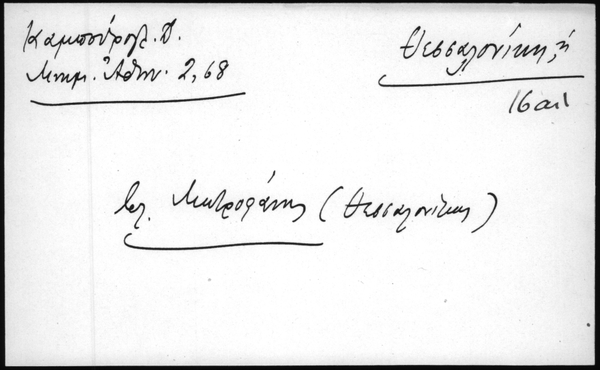 Καμπούρογλ. Δ.
Μνημ. Ἀθην. 2, 68
Θεσσαλονίκη, ἡ
16 αι
βλ. Μητροφάνης (Θεσσαλονίκης)